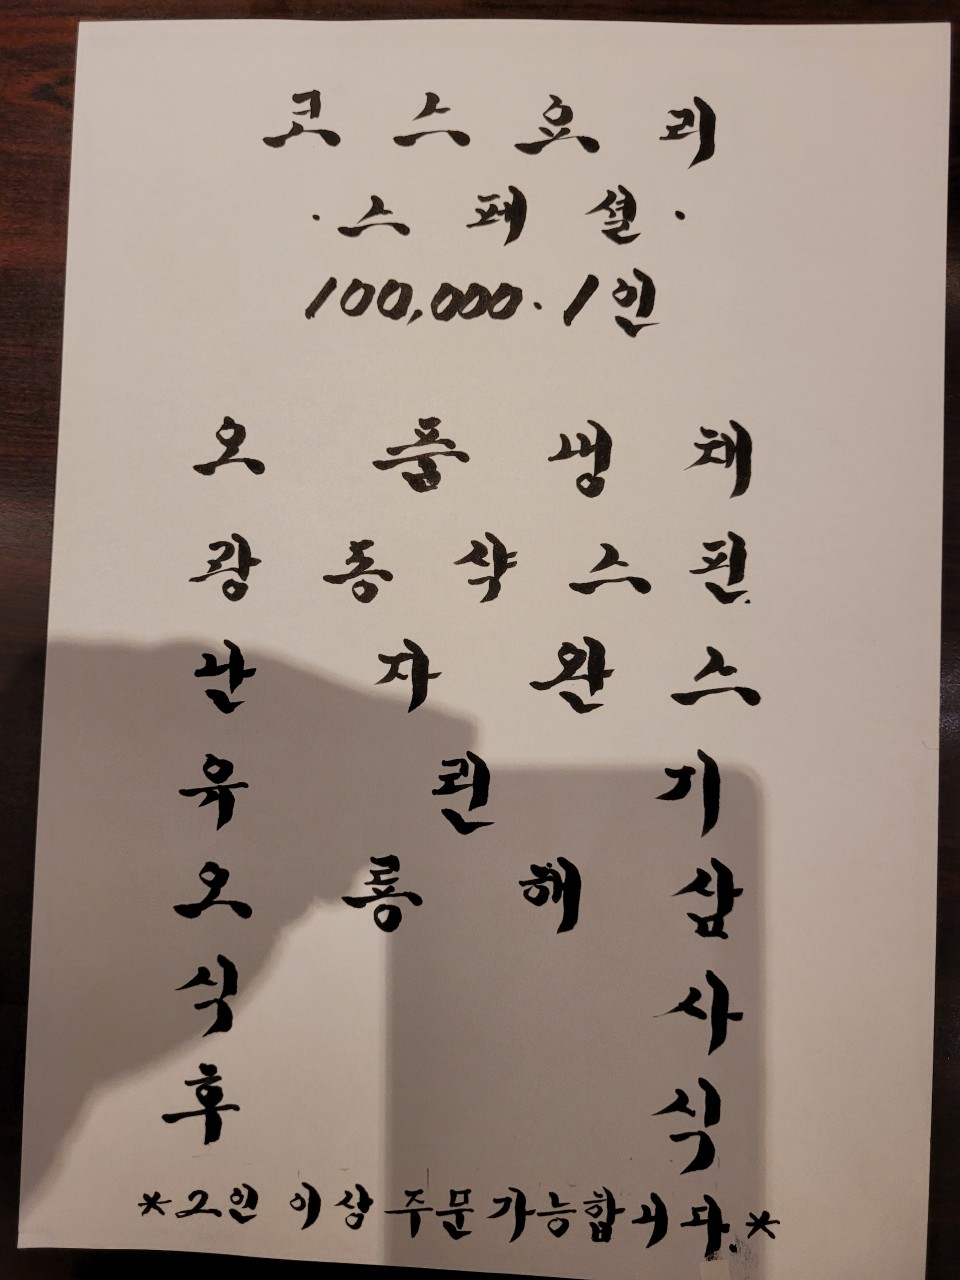 코스요리
·스페셜·
100,000.1인
오품냉채
광동샥스핀.
난자완스
유린기
오룡해삼
식사
후식
*2인 이상 주문가능합니다.*